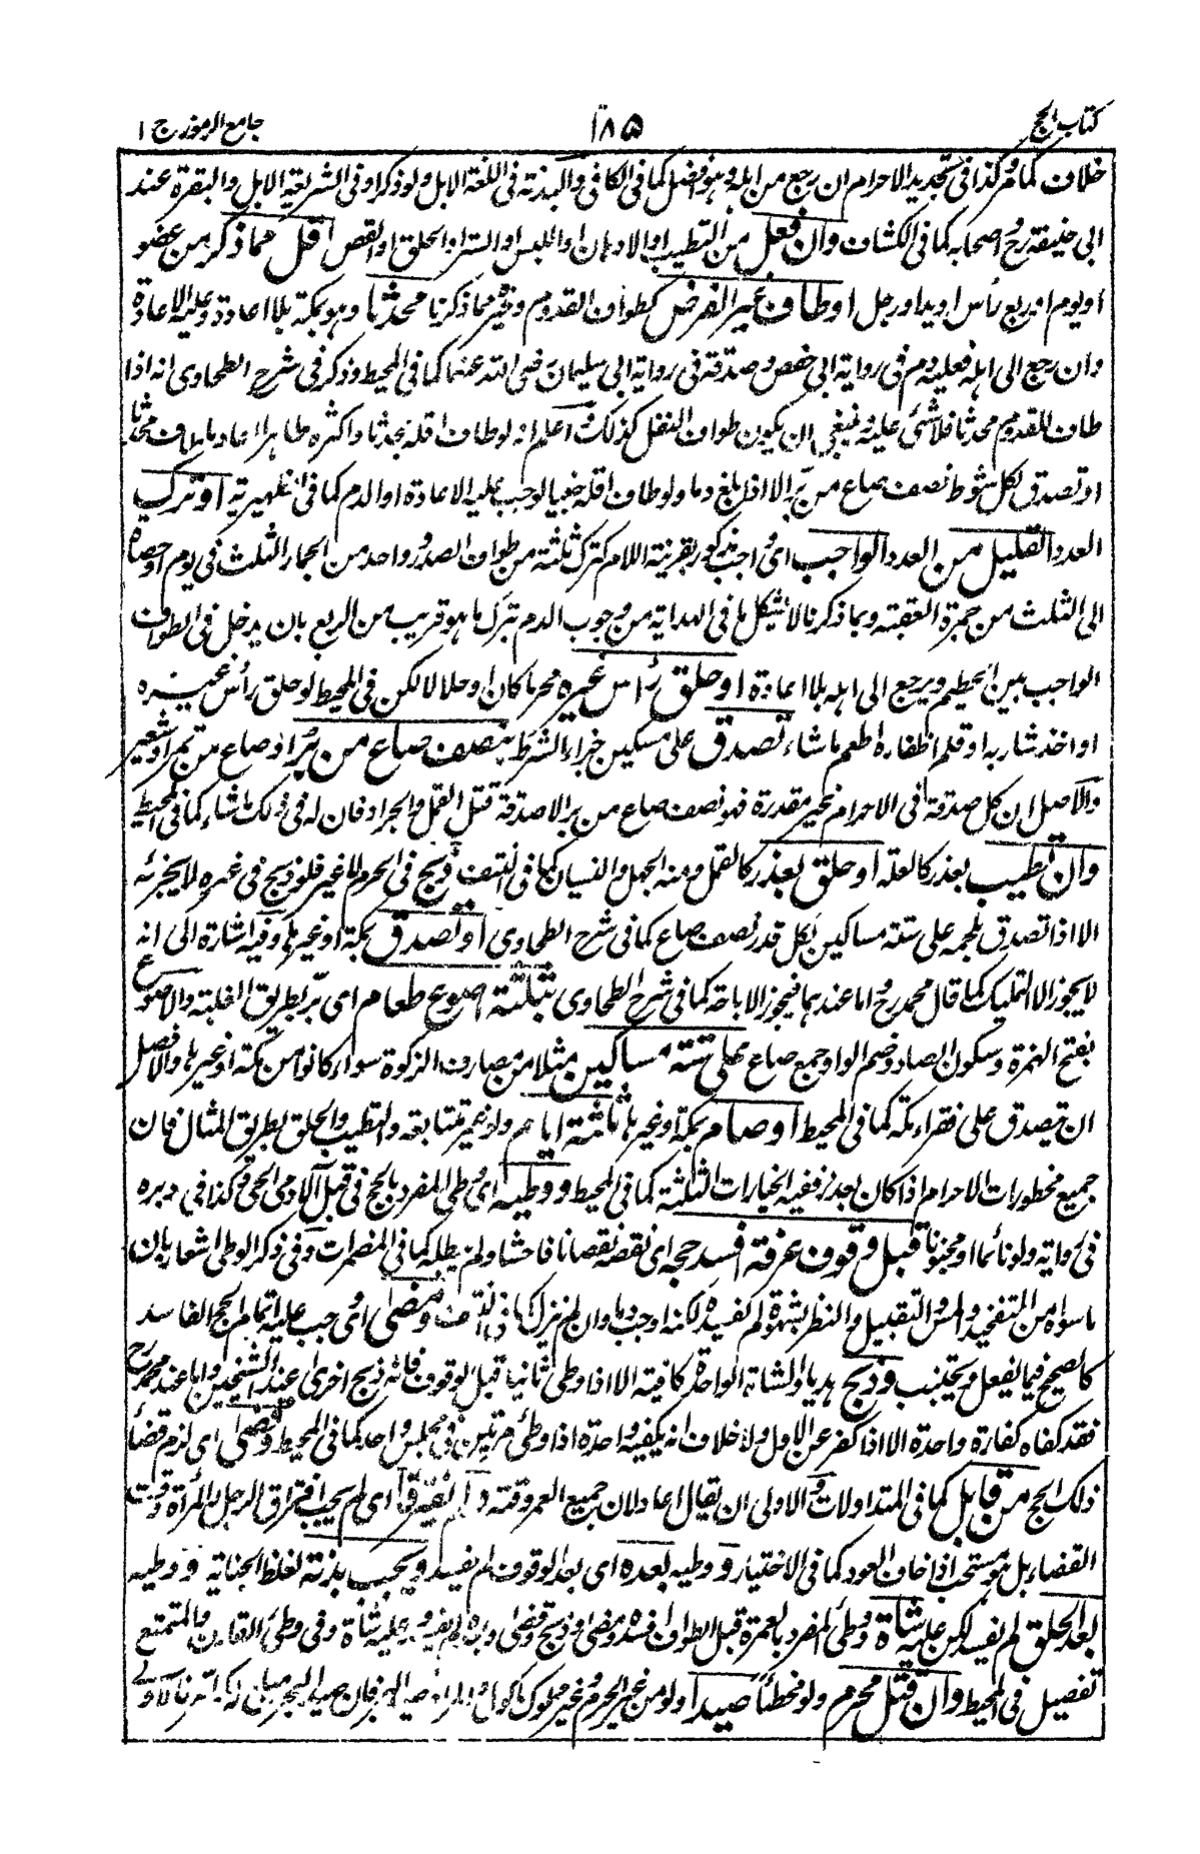 كتاب الحج ١٨٥ جامع الرموز ج ١
خلاف كما مر وكذا في تجديد الاحرام ان رجع من اهله وهو افضل كما في الكافي والبدنة في اللغة الابل ولو ذكرا وفي الشريعة الابل والبقرة عند
ابي حنيفة رح واصحابه كما في الكشاف وان فعل من التطيب او الادهان او اللبس او الستر او الحلق او القص اقل مما ذكر من عضو
او يوم او ربع رأس او يد او رجل او طاف غير الفرض كطواف القدوم وغيره مما ذكرنا محدثا وهو بمكة بلا اعادة وعليه الاعادة
وان رجع الى اهله فعليه دم في رواية ابي حفص وصدقة في رواية ابي سليمان رضي الله عنهما كما في المحيط وذكر في شرح الطحاوي انه اذا
طاف للقدوم محدثا فلا شئ عليه فينبغي ان يكون طواف النفل كذلك واعلم انه لو طاف اقله محدثا واكثره طاهرا اعاد ما طاف محدثا
او تصدق لكل شوط نصف صاع من بر الا اذا بلغ دما ولو طاف اقله جنبا لوجب عليه الاعادة او الدم كما في الظهيرية او ترك
العدد القليل من العدد الواجب اي واجب مذكور بقرينة اللام كترك ثلثة من طواف الصدر وواحد من الجمار الثلث في يوم او حصاة
الى الثلث من جمرة العقبة وبما ذكرنا لا يشكل ما في الهداية من وجوب الدم بترك ما هو قريب من الربع بان يدخل في الطواف
الواجب بين الحطيم ويرجع الى اهله بلا اعادة او حلق رأس غيره محرما كان او حلالا لكن في المحيط لو حلق رأس غيره
او اخذ شاربه او قلم اظفاره اطعم ما شاء تصدق على مسكين جزاء الشرط بنصف صاع من بر او صاع من تمر او شعير
والاصل ان كل صدقة في الاحرام غير مقدرة فهو نصف صاع من بر الا صدقة قتل القمل والجراد فان له في ذلك ما شاء كما في المحيط
وان تطيب بعذر كالعلة او حلق بعذر كالقمل ومنه الجهل والنسيان كما في النتف ذبح في الحرم لا غير فلو ذبح في غيره لا يجزئه
الا اذا تصدق بلحمه على ستة مساكين لكل قدر نصف صاع كما في شرح الطحاوي او تصدق بمكة او غيرها وفيه اشارة الى انه
لا يجوز الا التمليك كما قال محمد رح واما عندهما فيجوز الاباحة كما في شرح الطحاوي بثلثة اصوع طعام اي بر بطريق الغلبة والاصوع
بفتح الهمزة وسكون الصاد وضم الواو جمع صاع على ستة مساكين مثلا من مصارف الزكوة سواء كانوا من مكة او غيرها والافضل
ان يتصدق على فقراء مكة كما في المحيط او صام بمكة وغيرها ثلثة ايام ولو غير متتابعة والتطيب والحلق بطريق المثال فان
جميع محظورات الاحرام اذا كان بعذر ففيه الخيارات الثلثة كما في المحيط ووطيه اي وطي المفرد بالحج في قبل الآدمي الحي وكذا في دبره
في رواية ولو نائما او مجنونا قبل وقوف عرفة افسد حجه اي نقضه نقصانا فاحشا ولم يبطله كما في المضمرات وفي ذكر الوطي اشعار بان
ما سواه من التفخيذ واللمس والتقبيل والنظر بشهوة لم يفسده لكنه اوجب دما وان لم ينزل كما في النتف ومضى اي وجب عليه اتمام الحج الفاسد
كالصحيح فيما يفعل ويجتنب وذبح هديا والشاة الواحدة كافية الا اذا وطي ثانيا قبل الوقوف فانه ذبح اخرى عند الشيخين واما عند محمد رح
فقد كفاه كفارة واحدة الا اذا كفر عن الاول ولا خلاف انه يكفيه واحدة اذا وطئ مرتين في مجلس واحد كما في المحيط وقضى اي لزم قضاء
ذلك الحج من قابل كما في المتداولات والاولى ان يقال اعاد لان جميع العمر وقته ولم يفترقا اي لم يجب افتراق الرجل والمرأة وقت
القضاء بل هو مستحب اذا خاف العود كما في الاختيار ووطيه بعده اي بعد الوقوف لم يفسد ويجب بدنة لغلظ الجناية ووطيه
بعد الحلق لم يفسد لكن عليه شاة ووطئ المفرد بالعمرة قبل الطواف افسد ومضى وذبح وقضى وبعده لم يفسد وعليه شاة وفي وطئ القارن والمتمتع
تفصيل في المحيط وان قتل محرم ولو مخطئا صيدا ولو من غير الحرم وغير مملوك ماكول